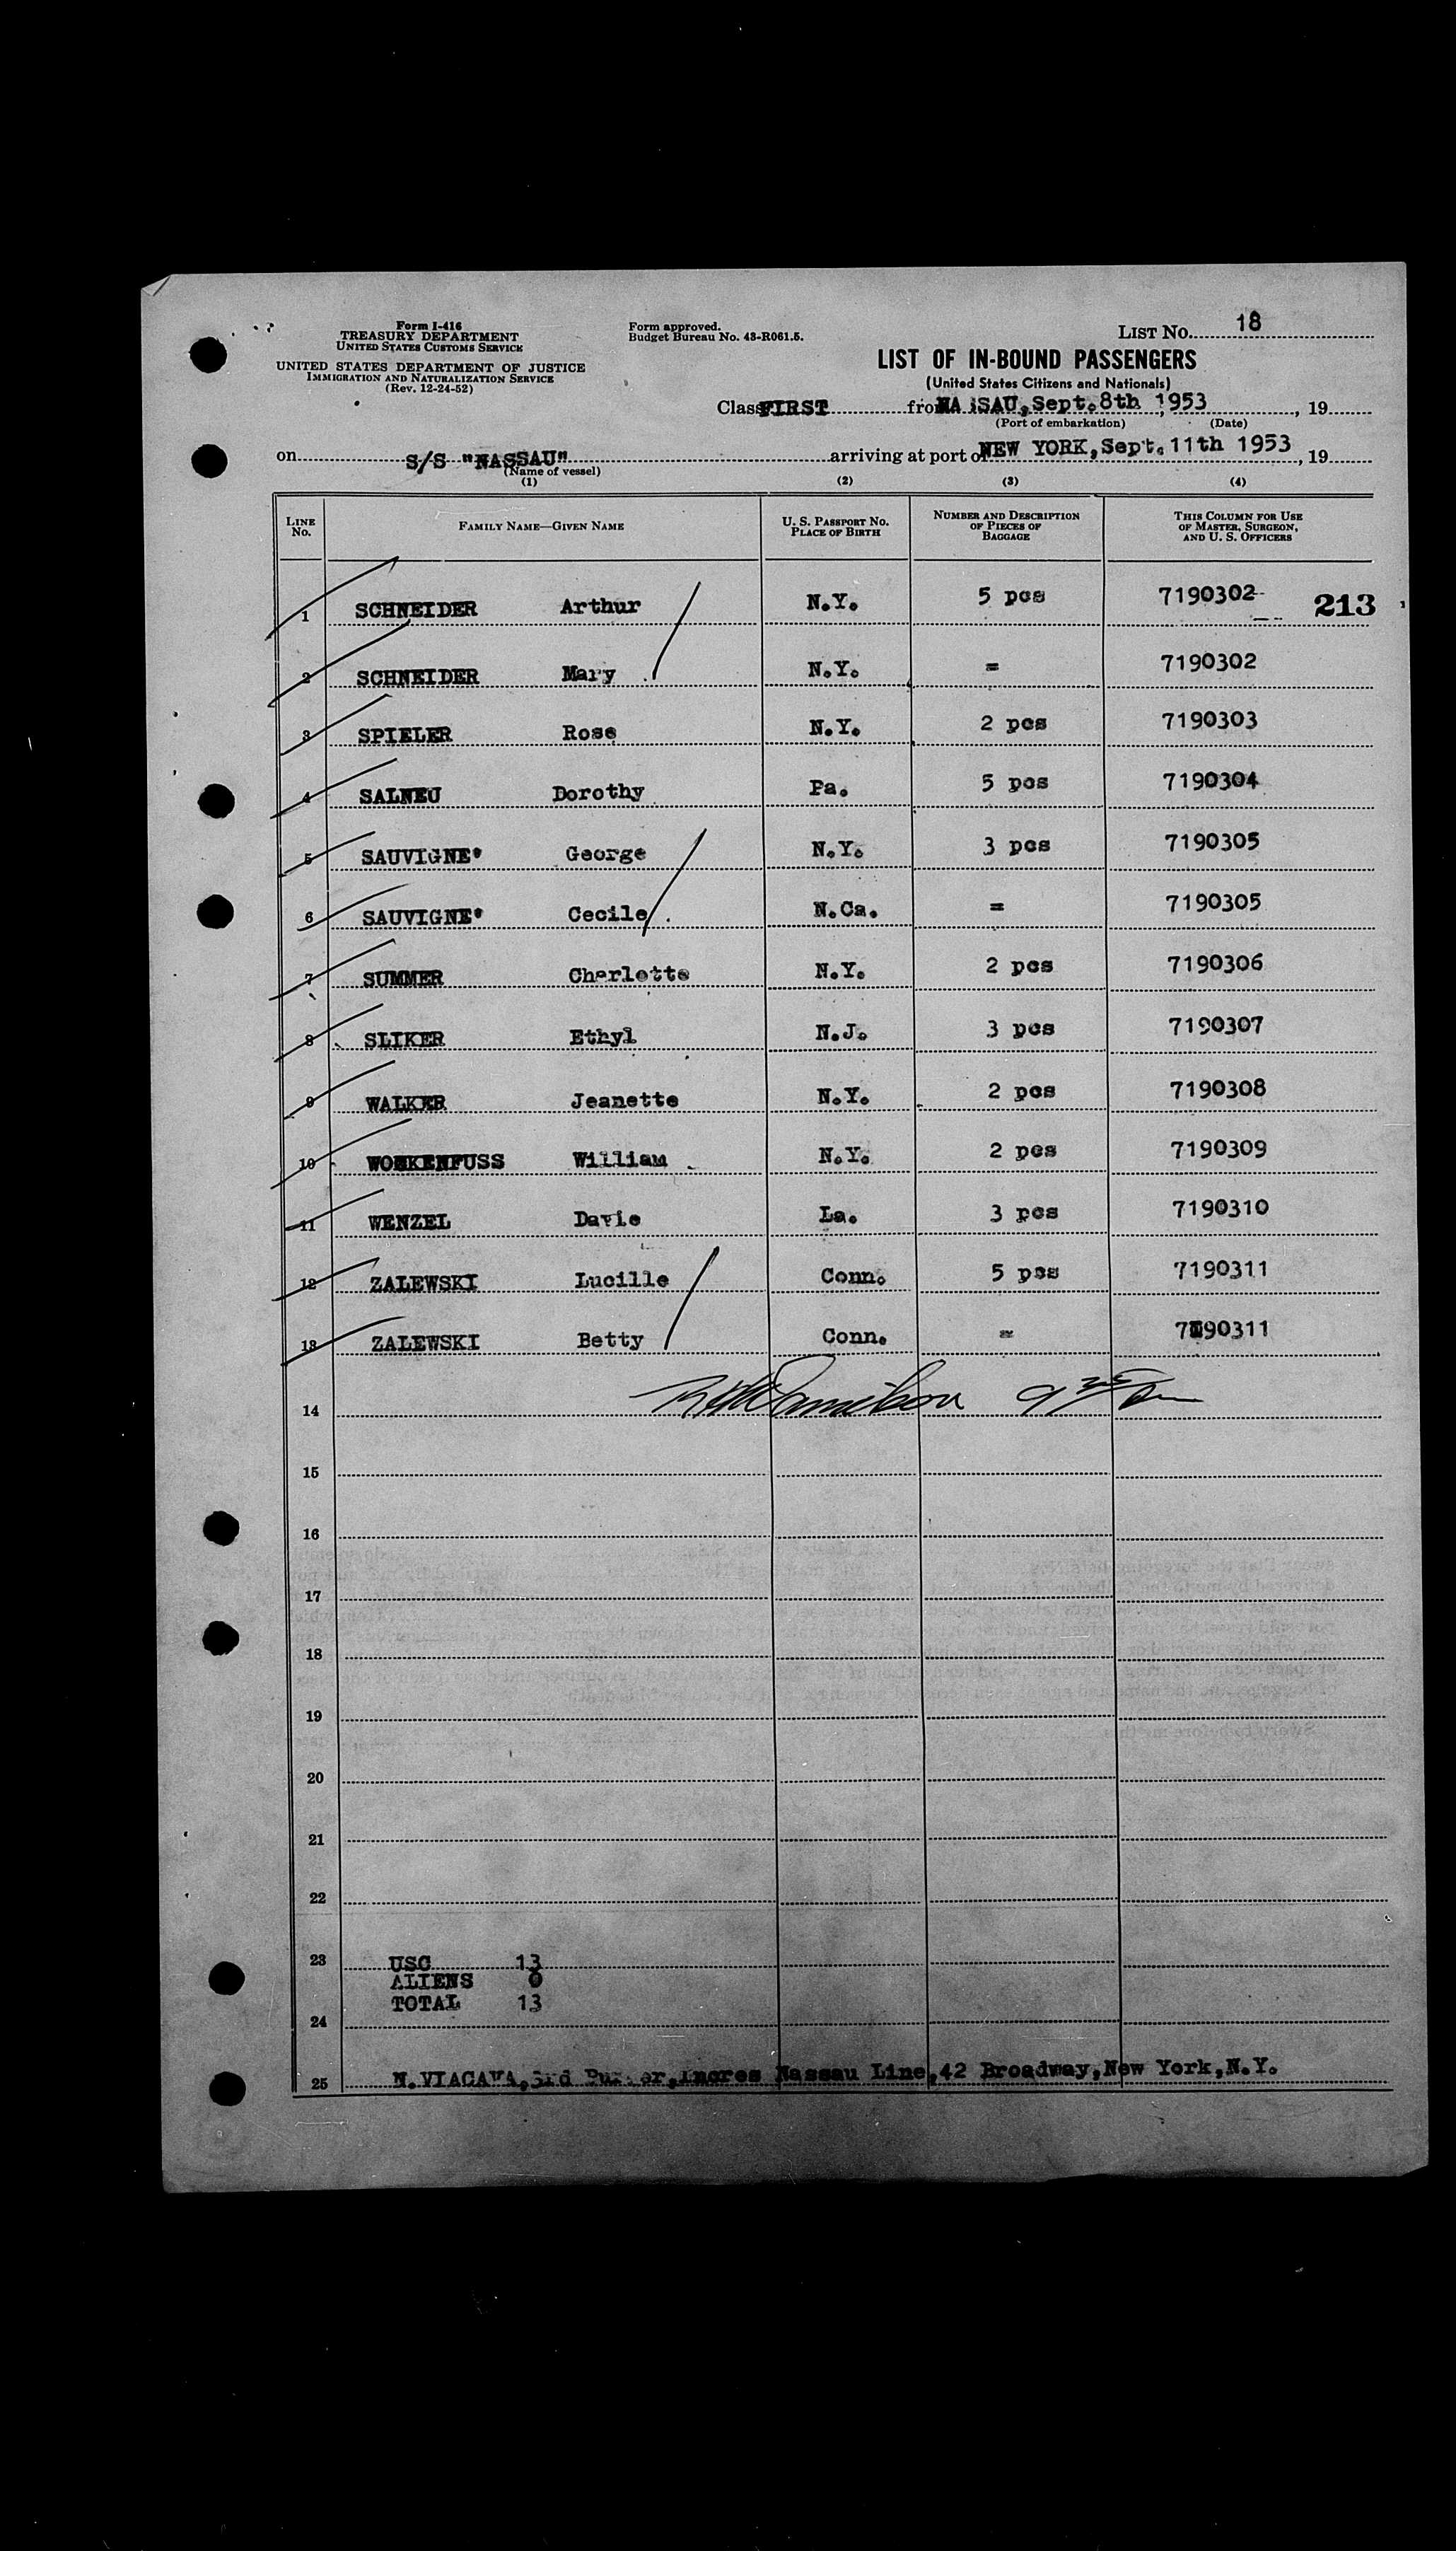 Form I-416
TREASURY DEPARTMENT
UNITED STATES CUSTOMS SERVICE
UNITED STATES DEPARTMENT OF JUSTICE
IMMIGRATION AND NATURALIZATION SERVICE
(Rev. 12-24-52)
Form approved.
Budget Bureau No. 43-R061.5.
LIST NO. 18
LIST OF IN-BOUND PASSENGERS
(United States Citizens and Nationals)
Class FIRST from NASSAU, Sept. 8th, 1953, 19
(Port of embarkation) (Date)
on S/S "NASSAU" arriving at port of NEW YORK, Sept. 11th 1953, 19
(Name of vessel)
(1) (2) (3) (4)
LINE NO. FAMILY NAME—GIVEN NAME U. S. PASSPORT NO. PLACE OF BIRTH NUMBER AND DESCRIPTION OF PIECES OF BAGGAGE THIS COLUMN FOR USE OF MASTER, SURGEON, AND U. S. OFFICERS
1 SCHNEIDER Arthur N.Y. 5 pcs 7190302 213
2 SCHNEIDER Mary N.Y. = 7190302
3 SPIELER Rose N.Y. 2 pcs 7190303
4 SALNEU Dorothy Pa. 5 pcs 7190304
5 SAUVIGNE' George N.Y. 3 pcs 7190305
6 SAUVIGNE' Cecile N.Ca. = 7190305
7 SUMMER Charlotte N.Y. 2 pcs 7190306
8 SLIKER Ethyl N.J. 3 pcs 7190307
9 WALKER Jeanette N.Y. 2 pcs 7190308
10 William N.Y. 2 pcs 7190309
11 WENZEL Davie La. 3 pcs 7190310
12 ZALEWSKI Lucille Conn. 5 pcs 7190311
13 ZALEWSKI Betty Conn. = 7190311
14
15
16
17
18
19
20
21
22
23 USC 13
ALIENS 0
TOTAL 13
24
25 N.VIACAVA, 3rd Purser, Incres Nassau Line, 42 Broadway, New York, N.Y.